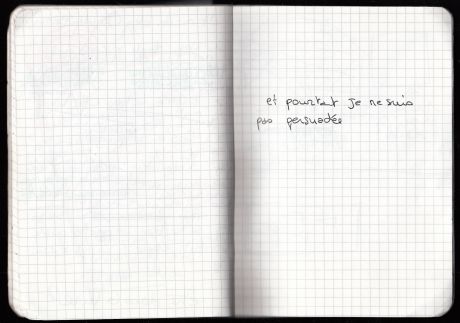 et pourtant je ne suis
pas persuadée